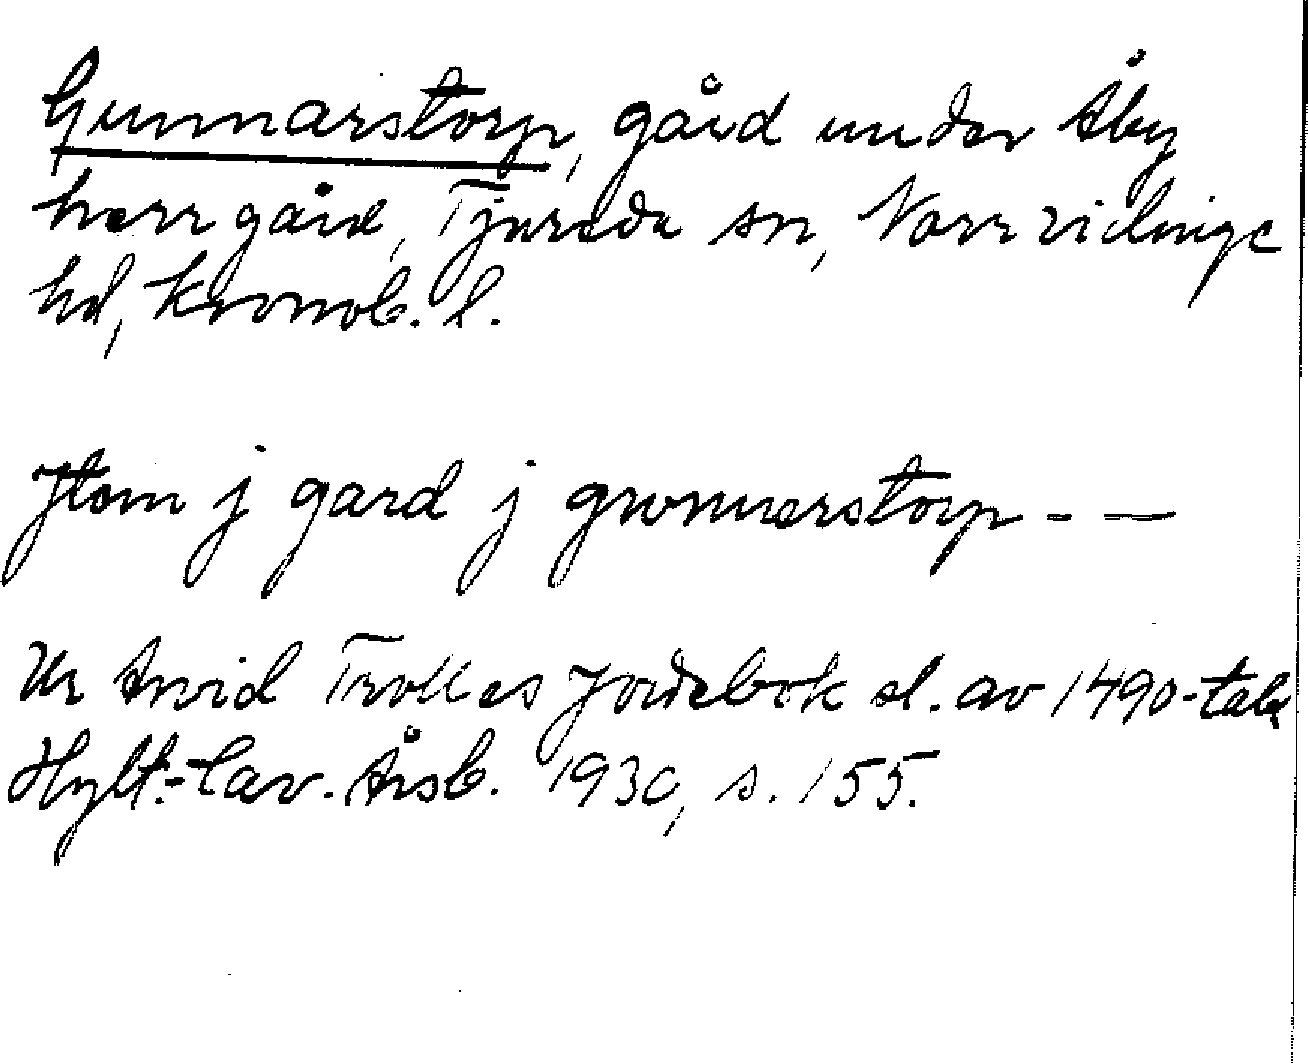 Gunnarstorp, gård under Åby
herrgård, Tjureda sn, Norrvidinge
hd, Kronob. l.
Jtem j gard j gwnnerstorp - —
Ur Arvid Trolles Jordebok sl. av 1490-tale
Hylt.-Cav. Årsb. 1930, s. 155.